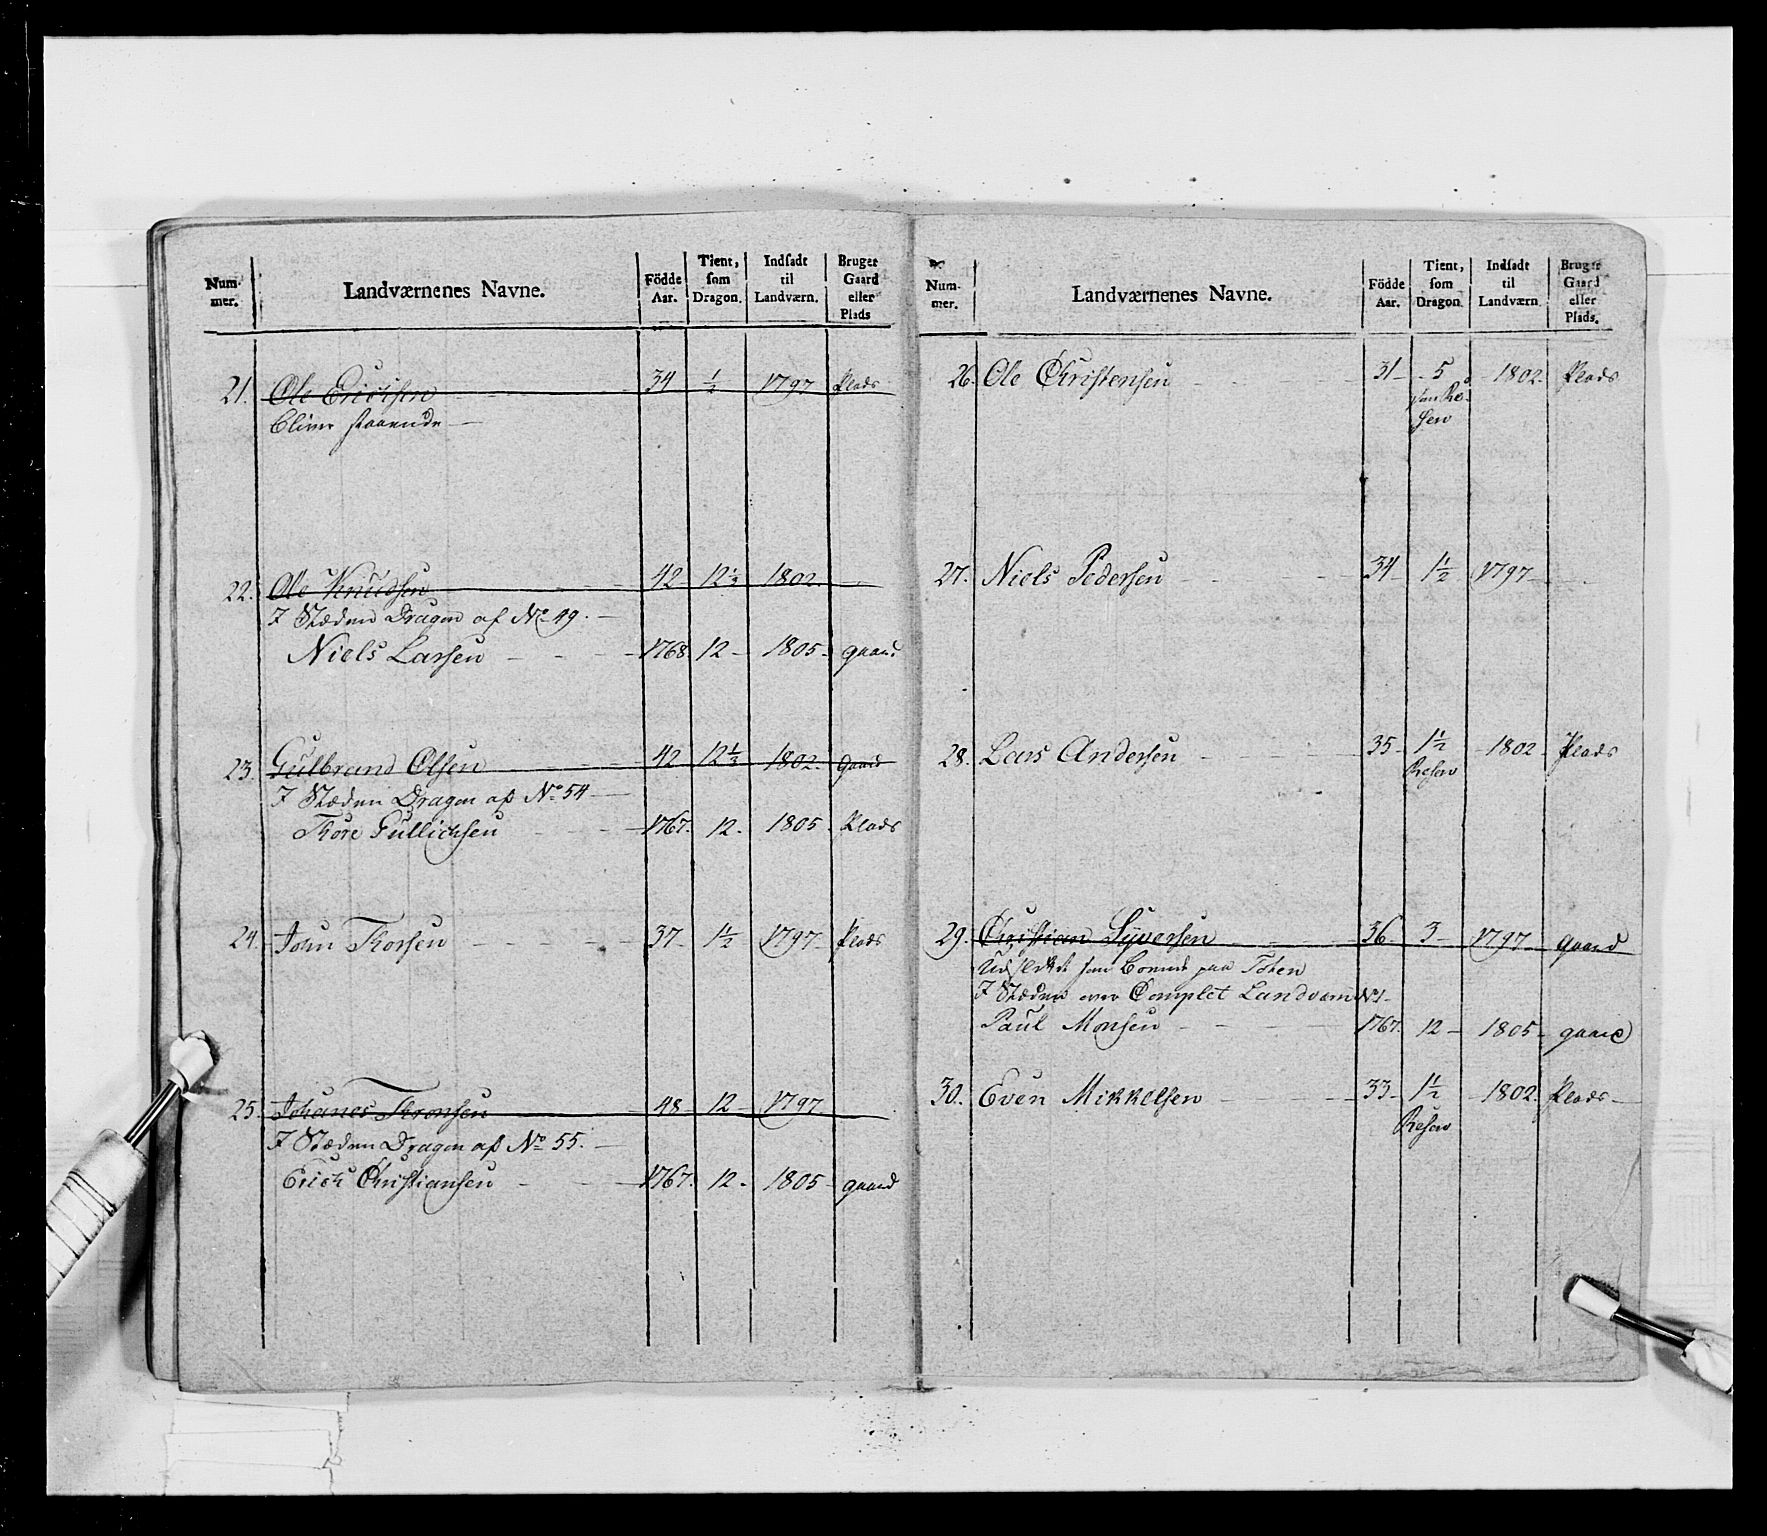 Nummer. Landværnenes Navne. Födde Aar. Tient, som Dragon. Indsadt til Landværn. Bruger Gaard eller Plads
21. Ole Erichsen 34 ½ 1797 Plads
Bliver staaende
22. Ole Knudsen 42 12½ 1802
I Stæden Dragon af No 49.
Niels Larsen 1768. 12 1805 gaard
23. Gulbrand Olsen 42 12½ 1802. gaard
I Stæden Dragon af No 54
Thore Gullichsen 1767. 12. 1805 Plads
24. John Thorsen 37 1½ 1797 Plads
25. Johanes Thronsen 48 12 1797
I Stæden Dragon af No 55.
Erich Christiansen 1767. 12 1805 gaard
Nummer. Landværnenes Navne. Födde Aar. Tient, som Dragon. Indsadt til Landværn. Bruger Gaard eller Plads.
26. Ole Christensen 31 5 1802. Plads
som Re-
serv
27. Niels Pedersen 34 1½ 1797
28. Lars Andersen 35 1½ 1802 Plads
Reserv
29. Christian Syversen 36. 3 1797 gaard
Udslettet som Boende paa Toten
I Stæden over Complet Landværn No 1
Paul Monsen 1767. 12 1805 gaard
30. Even Mikkelsen 33 1½ 1802 Plads
Reserv